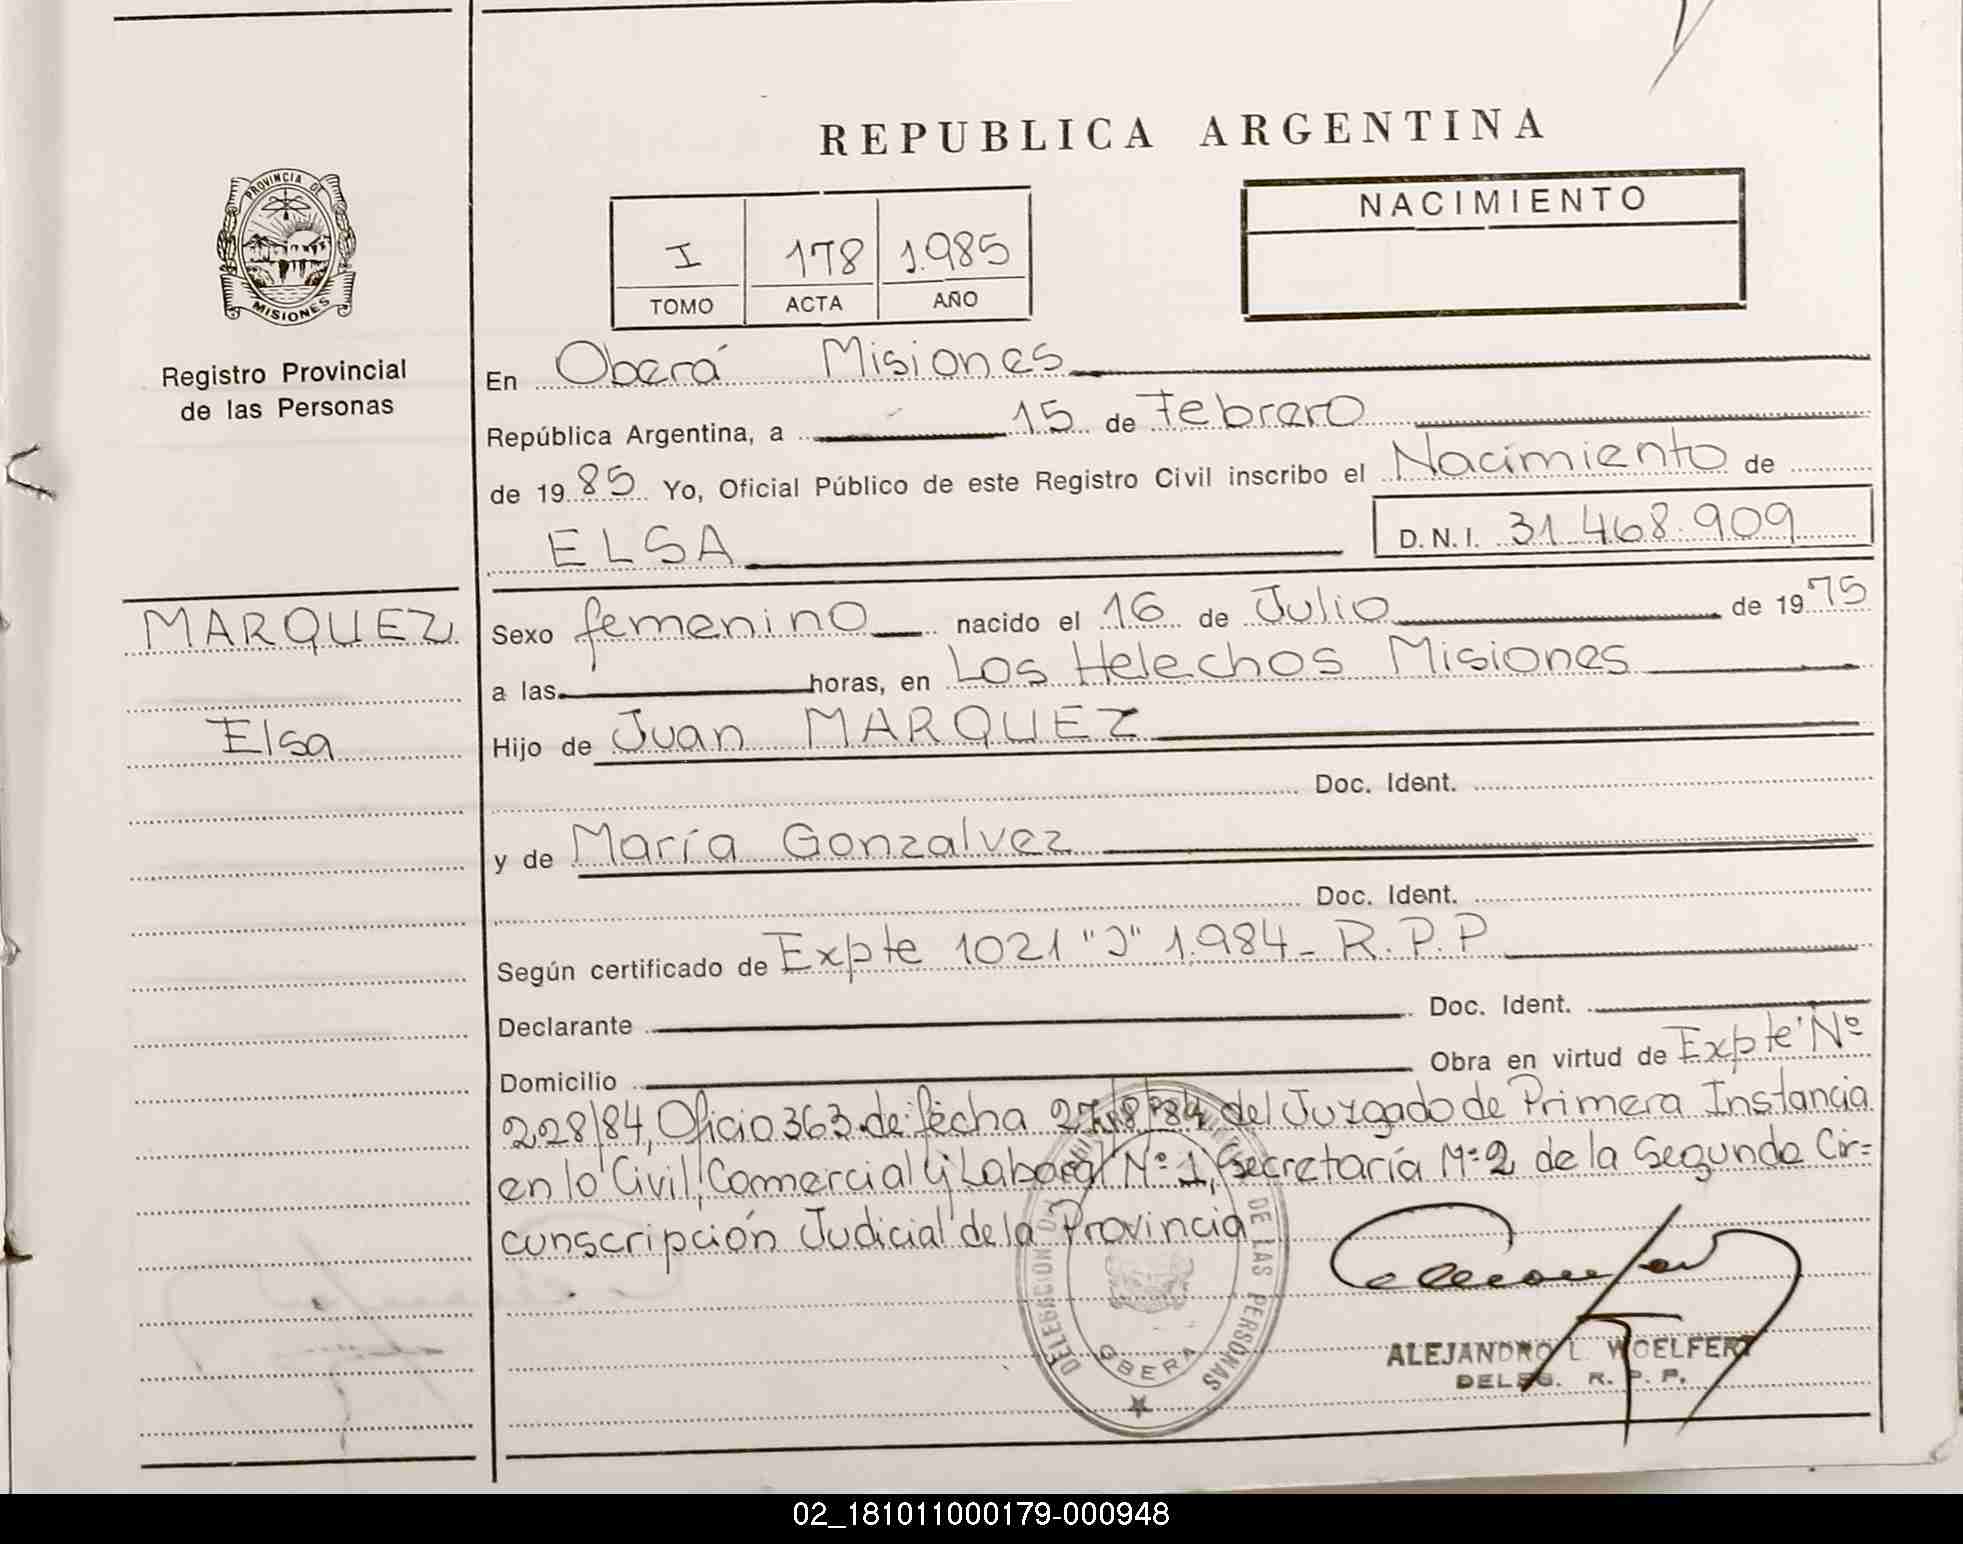 REPUBLICA ARGENTINA
PROVINCIA DE
MISIONES
Registro Provincial
de las Personas
I 178 1.985
TOMO ACTA AÑO
NACIMIENTO
En Oberá Misiones
República Argentina, a 15 de Febrero
de 1985 Yo, Oficial Público de este Registro Civil inscribo el Nacimiento de
ELSA D.N.I. 31.468.909
MARQUEZ
Elsa
Sexo femenino nacido el 16 de Julio de 1975
a las horas, en Los Helechos Misiones
Hijo de Juan MARQUEZ
Doc. Ident.
y de María Gonzalvez
Doc. Ident.
Según certificado de Expte 1021 "J" 1.984_ R.P.P
Declarante Doc. Ident.
Domicilio Obra en virtud de Expte Nº
228/84, Oficio 363 de fecha 27/8/84 del Juzgado de Primera Instancia
en lo Civil, Comercial y Laboral Nº 1, Secretaría Nº 2 de la Segunda Cir=
cunscripción Judicial de la Provincia
DELEGACION DE LAS PERSONAS
OBERA
ALEJANDRO L. WOELFERT
DELEG. R. P. P.
02_181011000179-000948